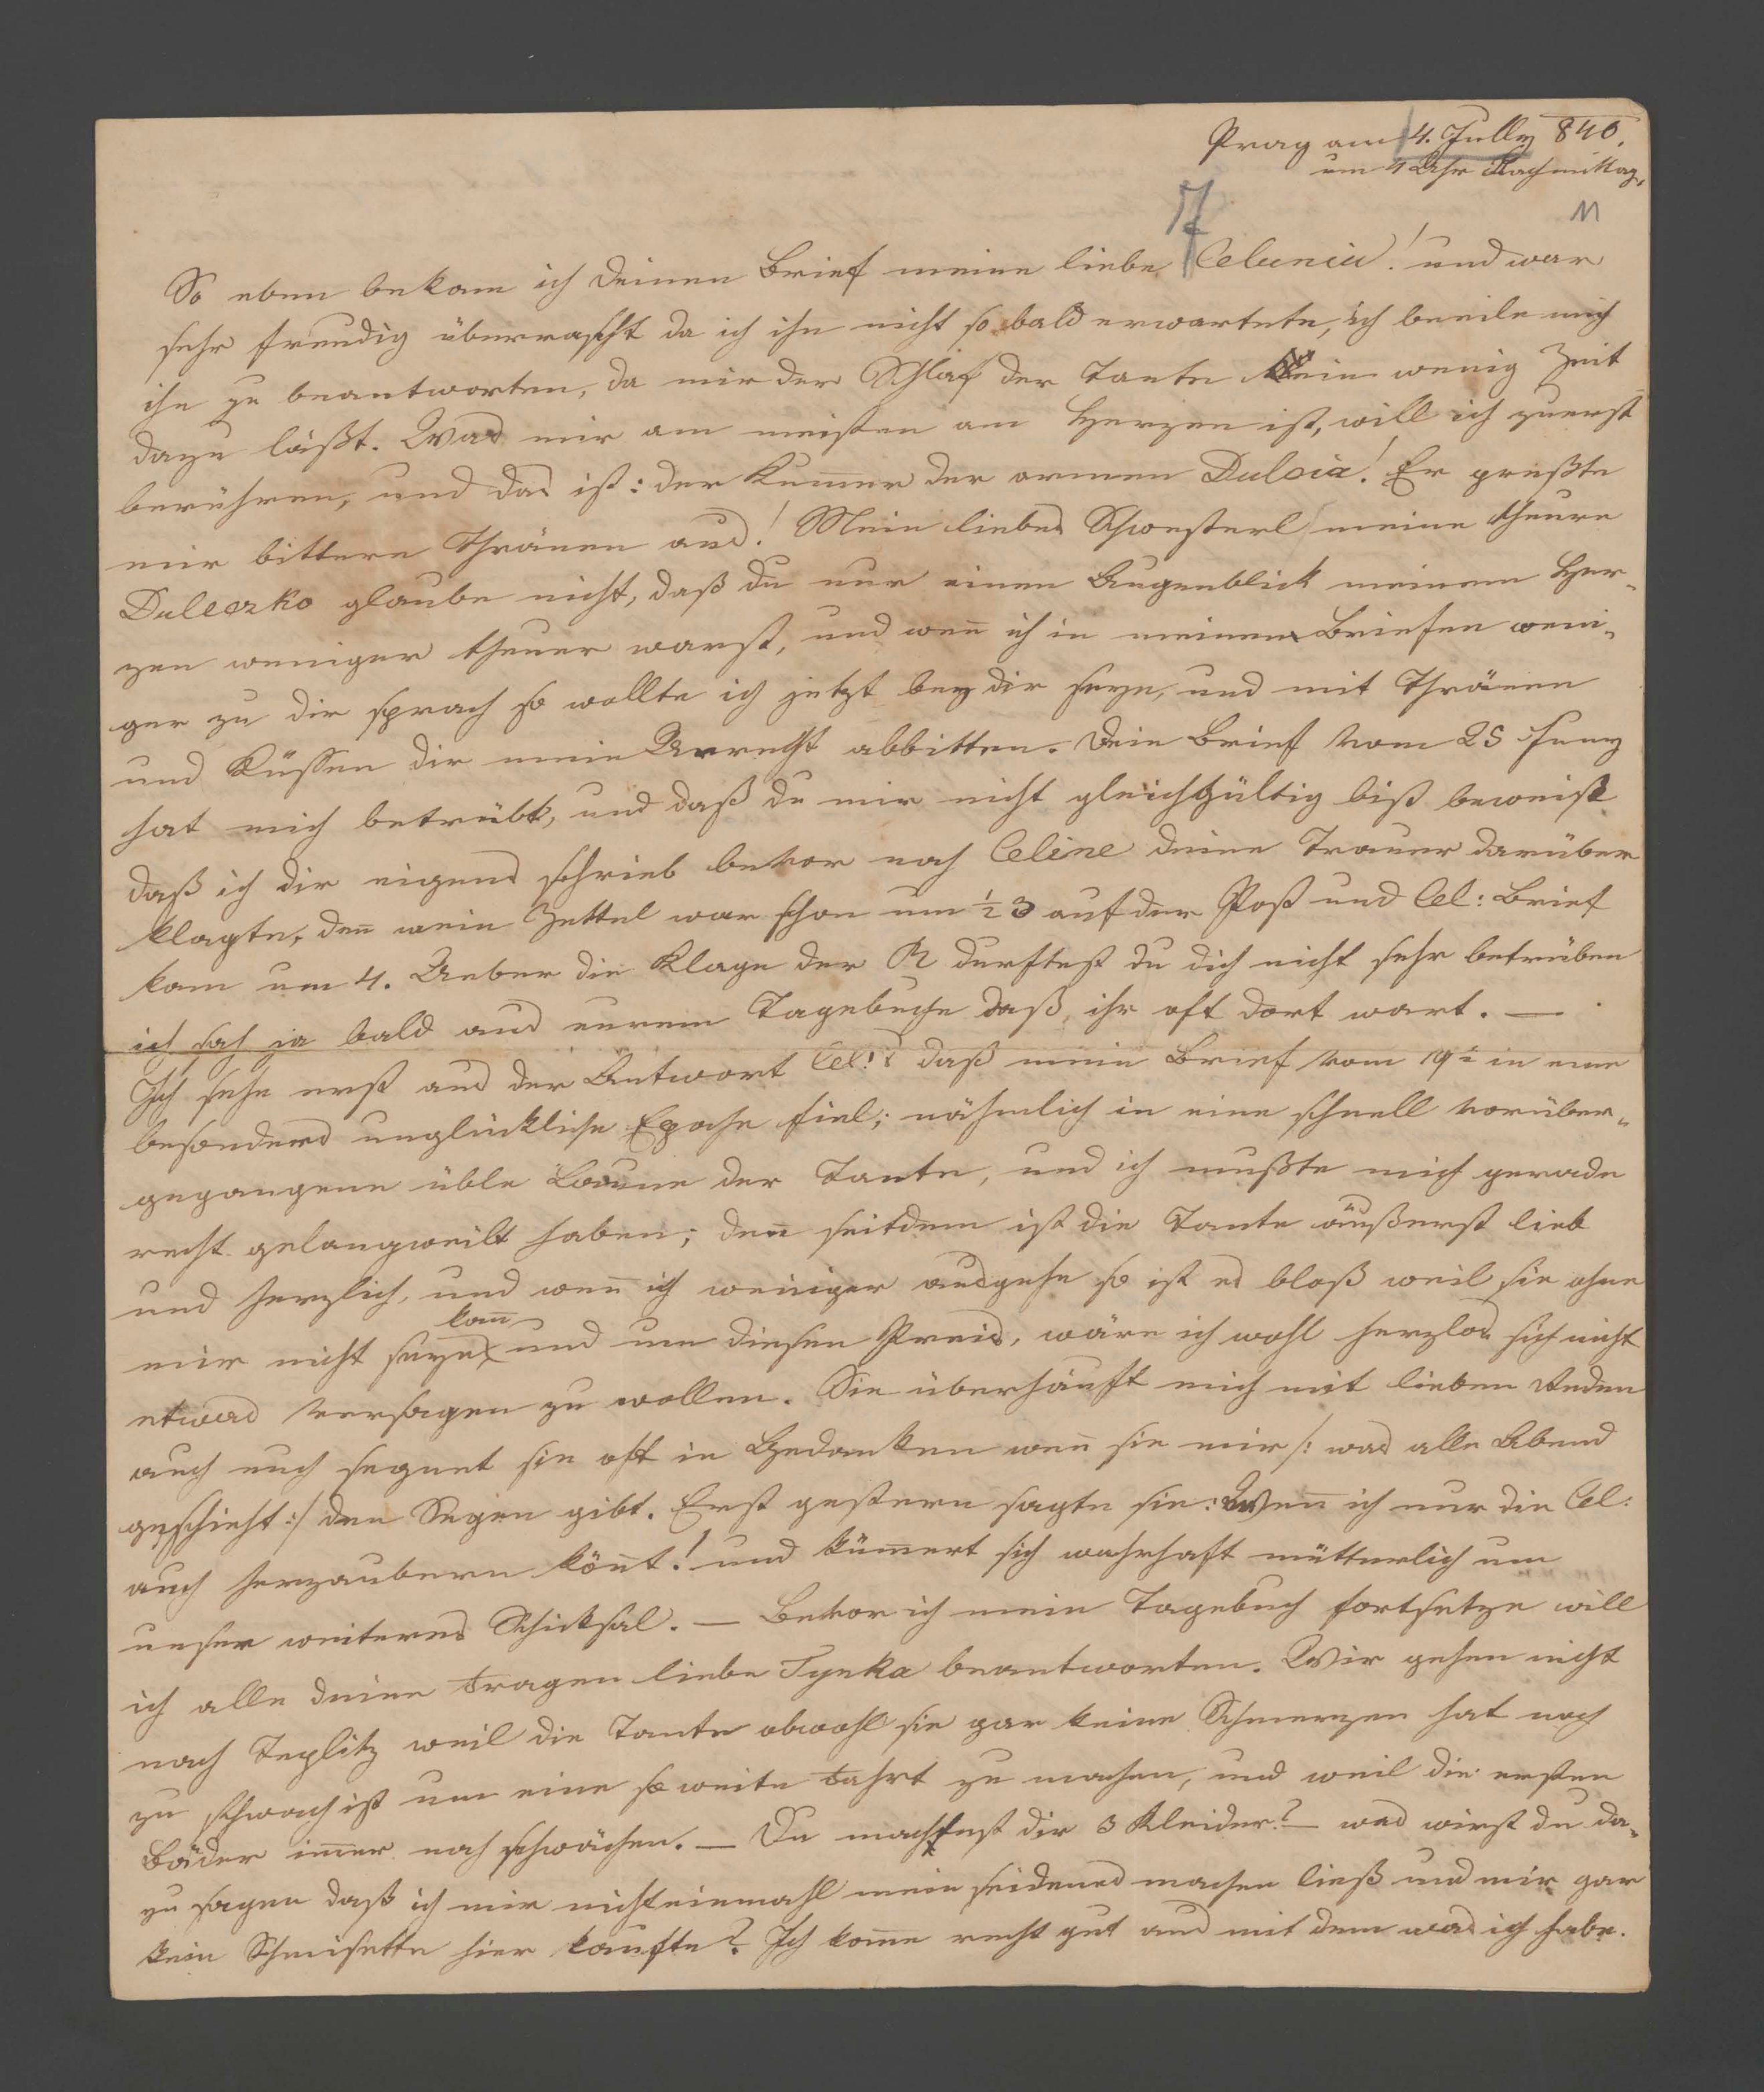 Prag am 4. July 840.
um 4 Uhr Nachmittag.
11
So eben bekam ich deinen Brief meine liebe Celunia! und war
sehr freudig überrascht da ich ihn nicht so bald erwartete, ich beeile mich
ihn zu beantworten, da mir der Schlaf der Tante ein wenig Zeit
dazu läßt. Was mir am meisten am Herzen ist, will ich zuerst
berühren, und das ist: der Kum̅er der armen Dulcia! Er preßte
mir bittere Thränen aus! Mein liebes Schwesterl meine theure
Duleczko glaube nicht, daß du nur einen Augenblick meinem Her-
zen weniger theuer warst, und wen̅ ich in meinen Briefen weni-
ger zu dir sprach so wollte ich jetzt bey dir seyn, und mit Thränen
und Küssen dir mein Unrecht abbitten. Dein Brief vom 25 Juny
hat mich betrübt, und daß du mir nicht gleichgültig bist beweist
daß ich dir eigens schrieb bevor noch Celine deine Trauer darüber
klagte, den̅ mein Zettel war schon um ½ 3 auf der Post und Cel: Brief
kam um 4. Ueber die Klage der R durftest du dich nicht sehr betrüben
ich sah ja bald aus eurem Tagebuche daß ihr oft dort wart. —
Ich sehe erst aus der Antwort Cel: daß mein Brief vom 19t in eine
besonders unglückliche Epoche fiel; nähmlich in eine schnell vorüber-
gegangene üble Laune der Tante, und ich mußte mich gerade
recht gelangweilt haben; den̅ seitdem ist die Tante äußerst lieb
und herzlich, und wen̅ ich weniger ausgehe so ist es bloß weil sie ohne
mir nicht seyn kan̅ und um diesen Preis, wäre ich wohl herzlos sich nicht
etwas versagen zu wollen. Sie überhäuft mich mit lieben Reden
auch euch segnet sie oft in Gedanken wen̅ sie mir /: was alle Abend
geschieht :/ den Segen gibt. Erst gestern sagte sie: Wen̅ ich nur die Cel:
auch herzaubern kön̅t! und küm̅ert sich wahrhaft mütterlich um
unser weiteres Schicksal. — Bevor ich mein Tagebuch fortsetze will
ich alle deine Fragen liebe Tynka beantworten. Wir gehen nicht
nach Teplitz weil die Tante obwohl sie gar keine Schmerzen hat noch
zu schwach ist um eine so weite Fahrt zu machen, und weil die ersten
Bäder im̅er noch schwächen. — Du machtest dir 3 Kleider? — was wirst du da-
zu sagen daß ich mir nicht einmahl mein seidenes machen ließ und mir gar
kein Schmisette hier kaufte? Ich kom̅e recht gut aus mit dem was ich habe.